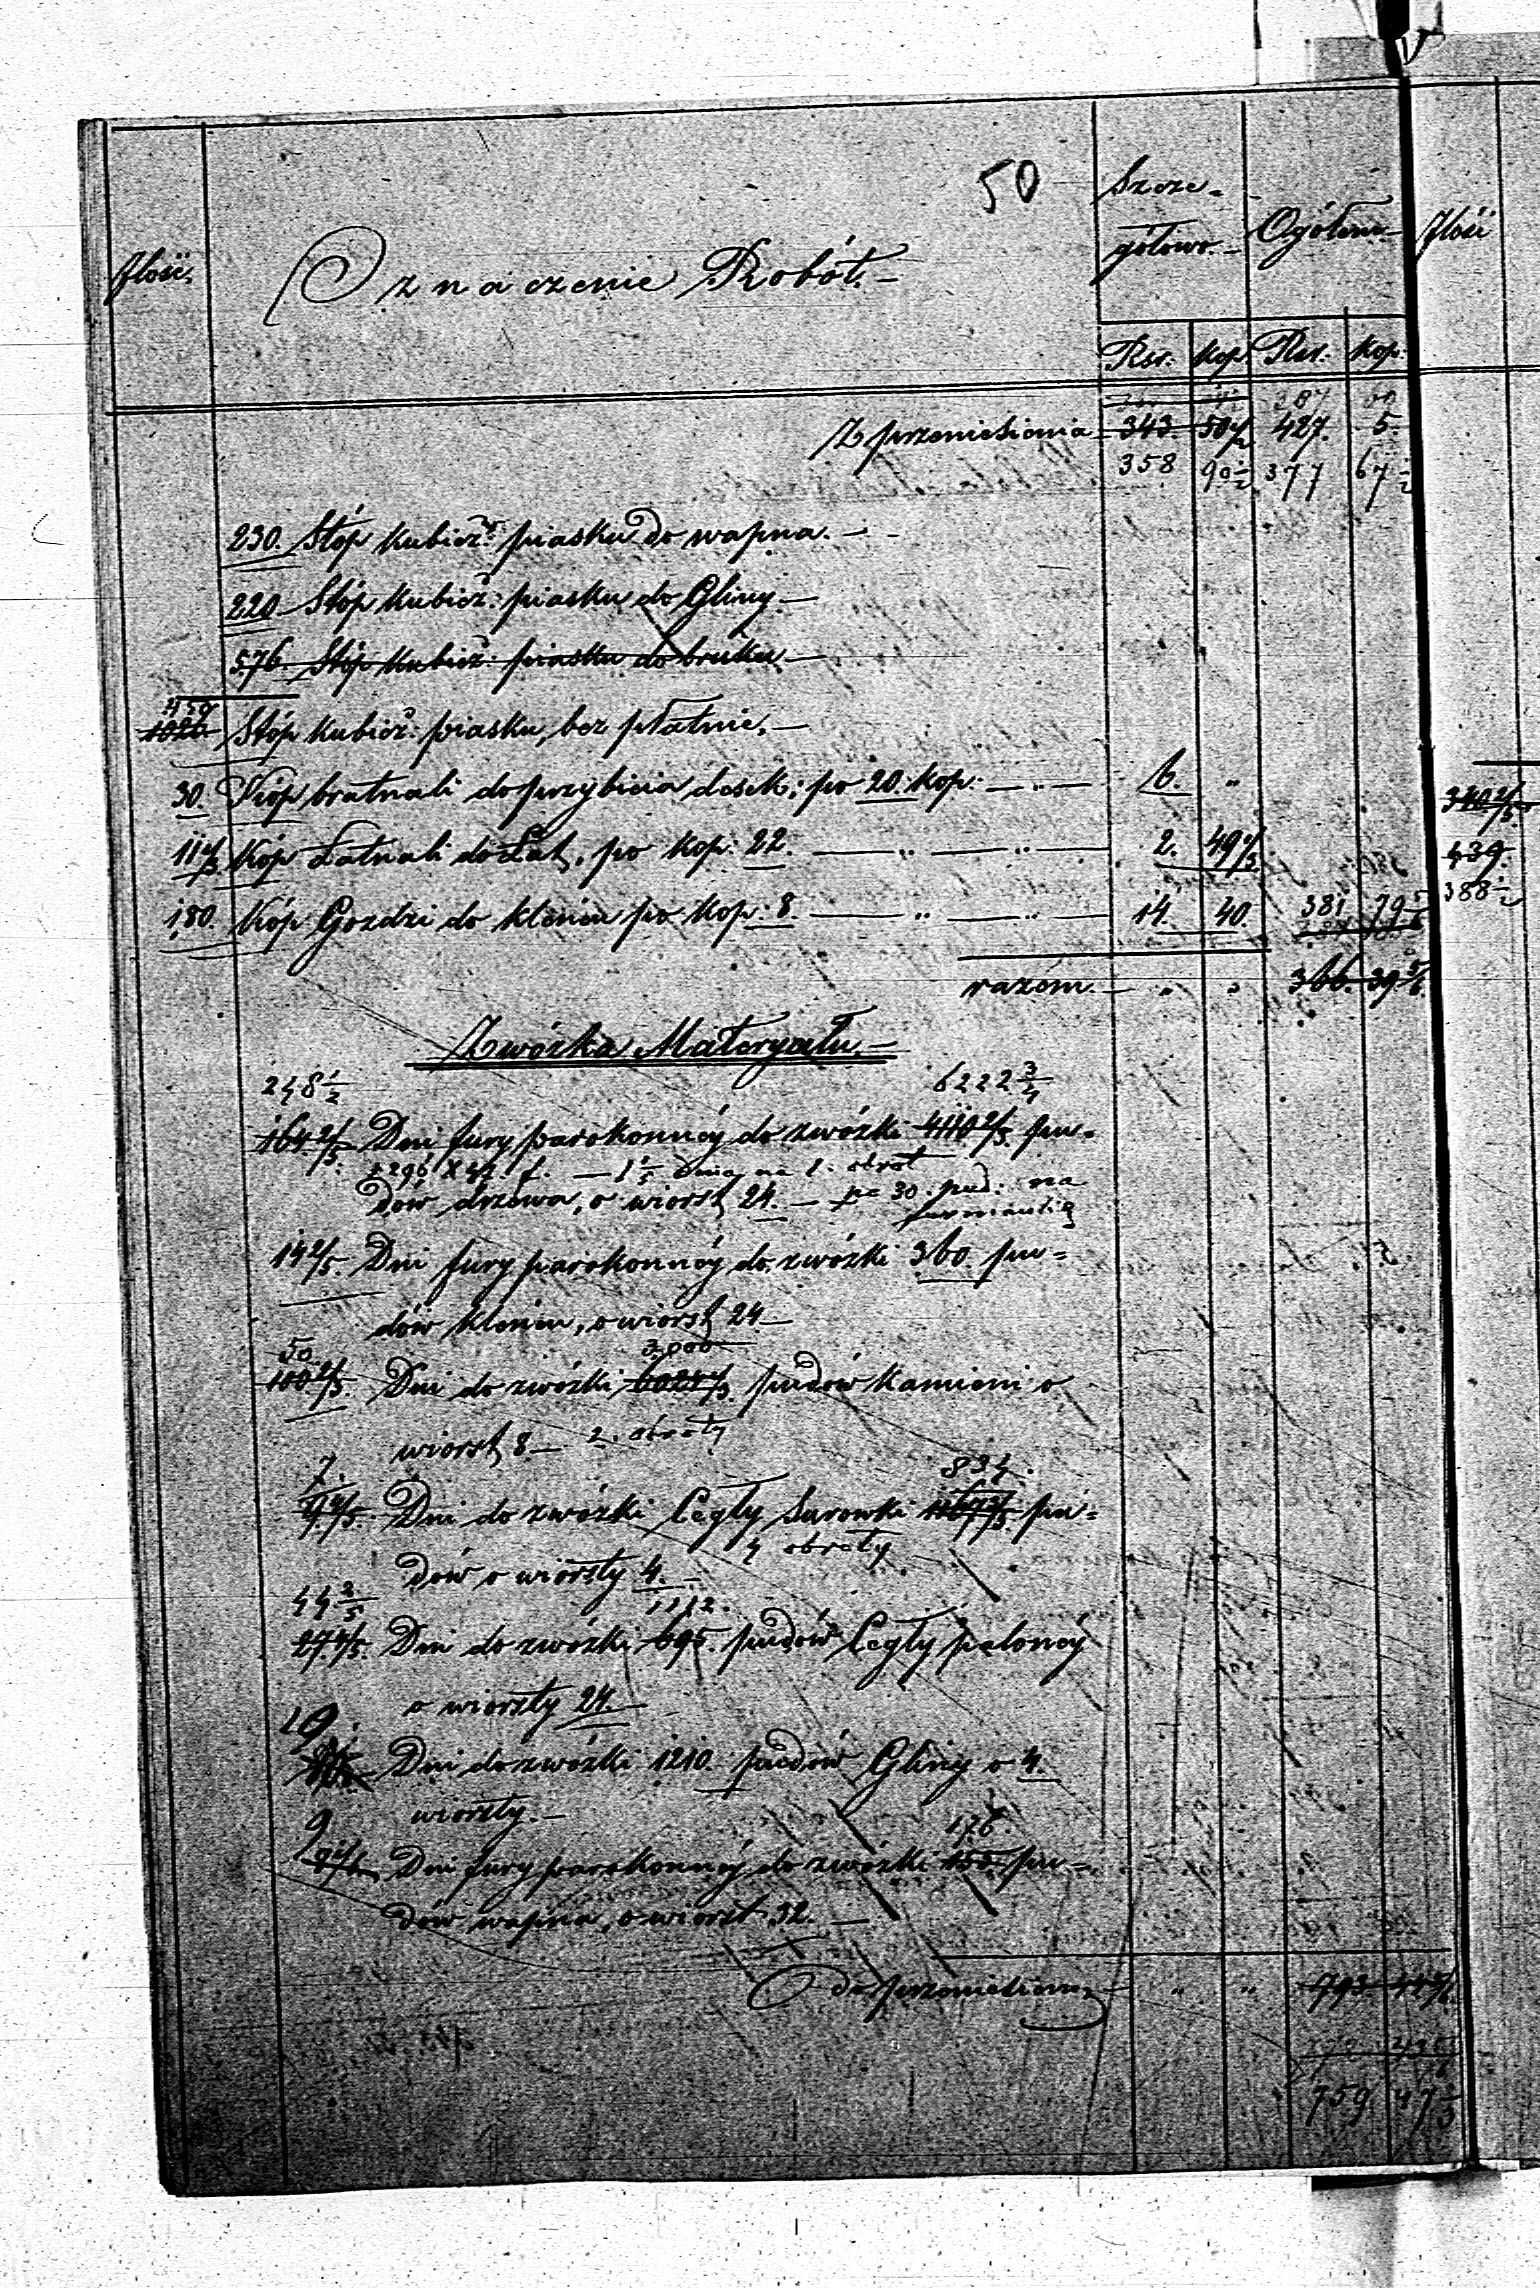 50
Ilość.
Oznaczenie Robót.
Szcze-
gółowo.
Ogółem
Ilość
Rsr. Kop. Rsr. Kop.
Z przeniesienia 343. 50 1/2 427. 5.
358 90 1/2 377 67 1/2
230. Stóp kubicz: piasku do wapna.
220 Stóp kubicz: piasku do Gliny.
576 Stóp kubicz: piasku do bruku
450
1026 Stóp kubicz: piasku, bez płatnie.
30. Kóp bratnali do przybicia desek, po 20. kop: 6. "
11 1/3 Kóp Łatnali do Łat, po kop: 22. 2. 49 1/3
180. Kóp Gozdzi do kleniu po kop: 8. 14. 40. 381 79 5/6
razem. " " 366. 39 5/6
Zwózka Materyału.
248 1/2 6222 3/4
164 2/5 Dni fury parokonnéj do zwózki 4110 2/3 pu=
dów drzewa, o wiorst 24. po 30. pud: na
furmankę
14 2/5 Dni fury parokonnéj do zwózki 360. pu=
dów kleniu, o wiorst 24
50. 3,000
100 2/5 Dni do zwózki pudów kamieni o
wiorst 8. 2. obroty
7. 834.
Dni do zwózki Cegły Surowki pu=
4 obroty
dów o wiorsty 4.
44 2/5 1112.
27 4/5 Dni do zwózki 695. pudów Cegły palonéj
o wiorsty 24.
10.
Dni do zwózki 1210. pudów Gliny o 4.
wiorsty.
9 176
Dni fury parokonnéj do zwózki 155 pu=
dów wapna, o wiorst 32.
do przeniesienia " " 793
759 47 1/3
340 2/5
439.
388 1/2